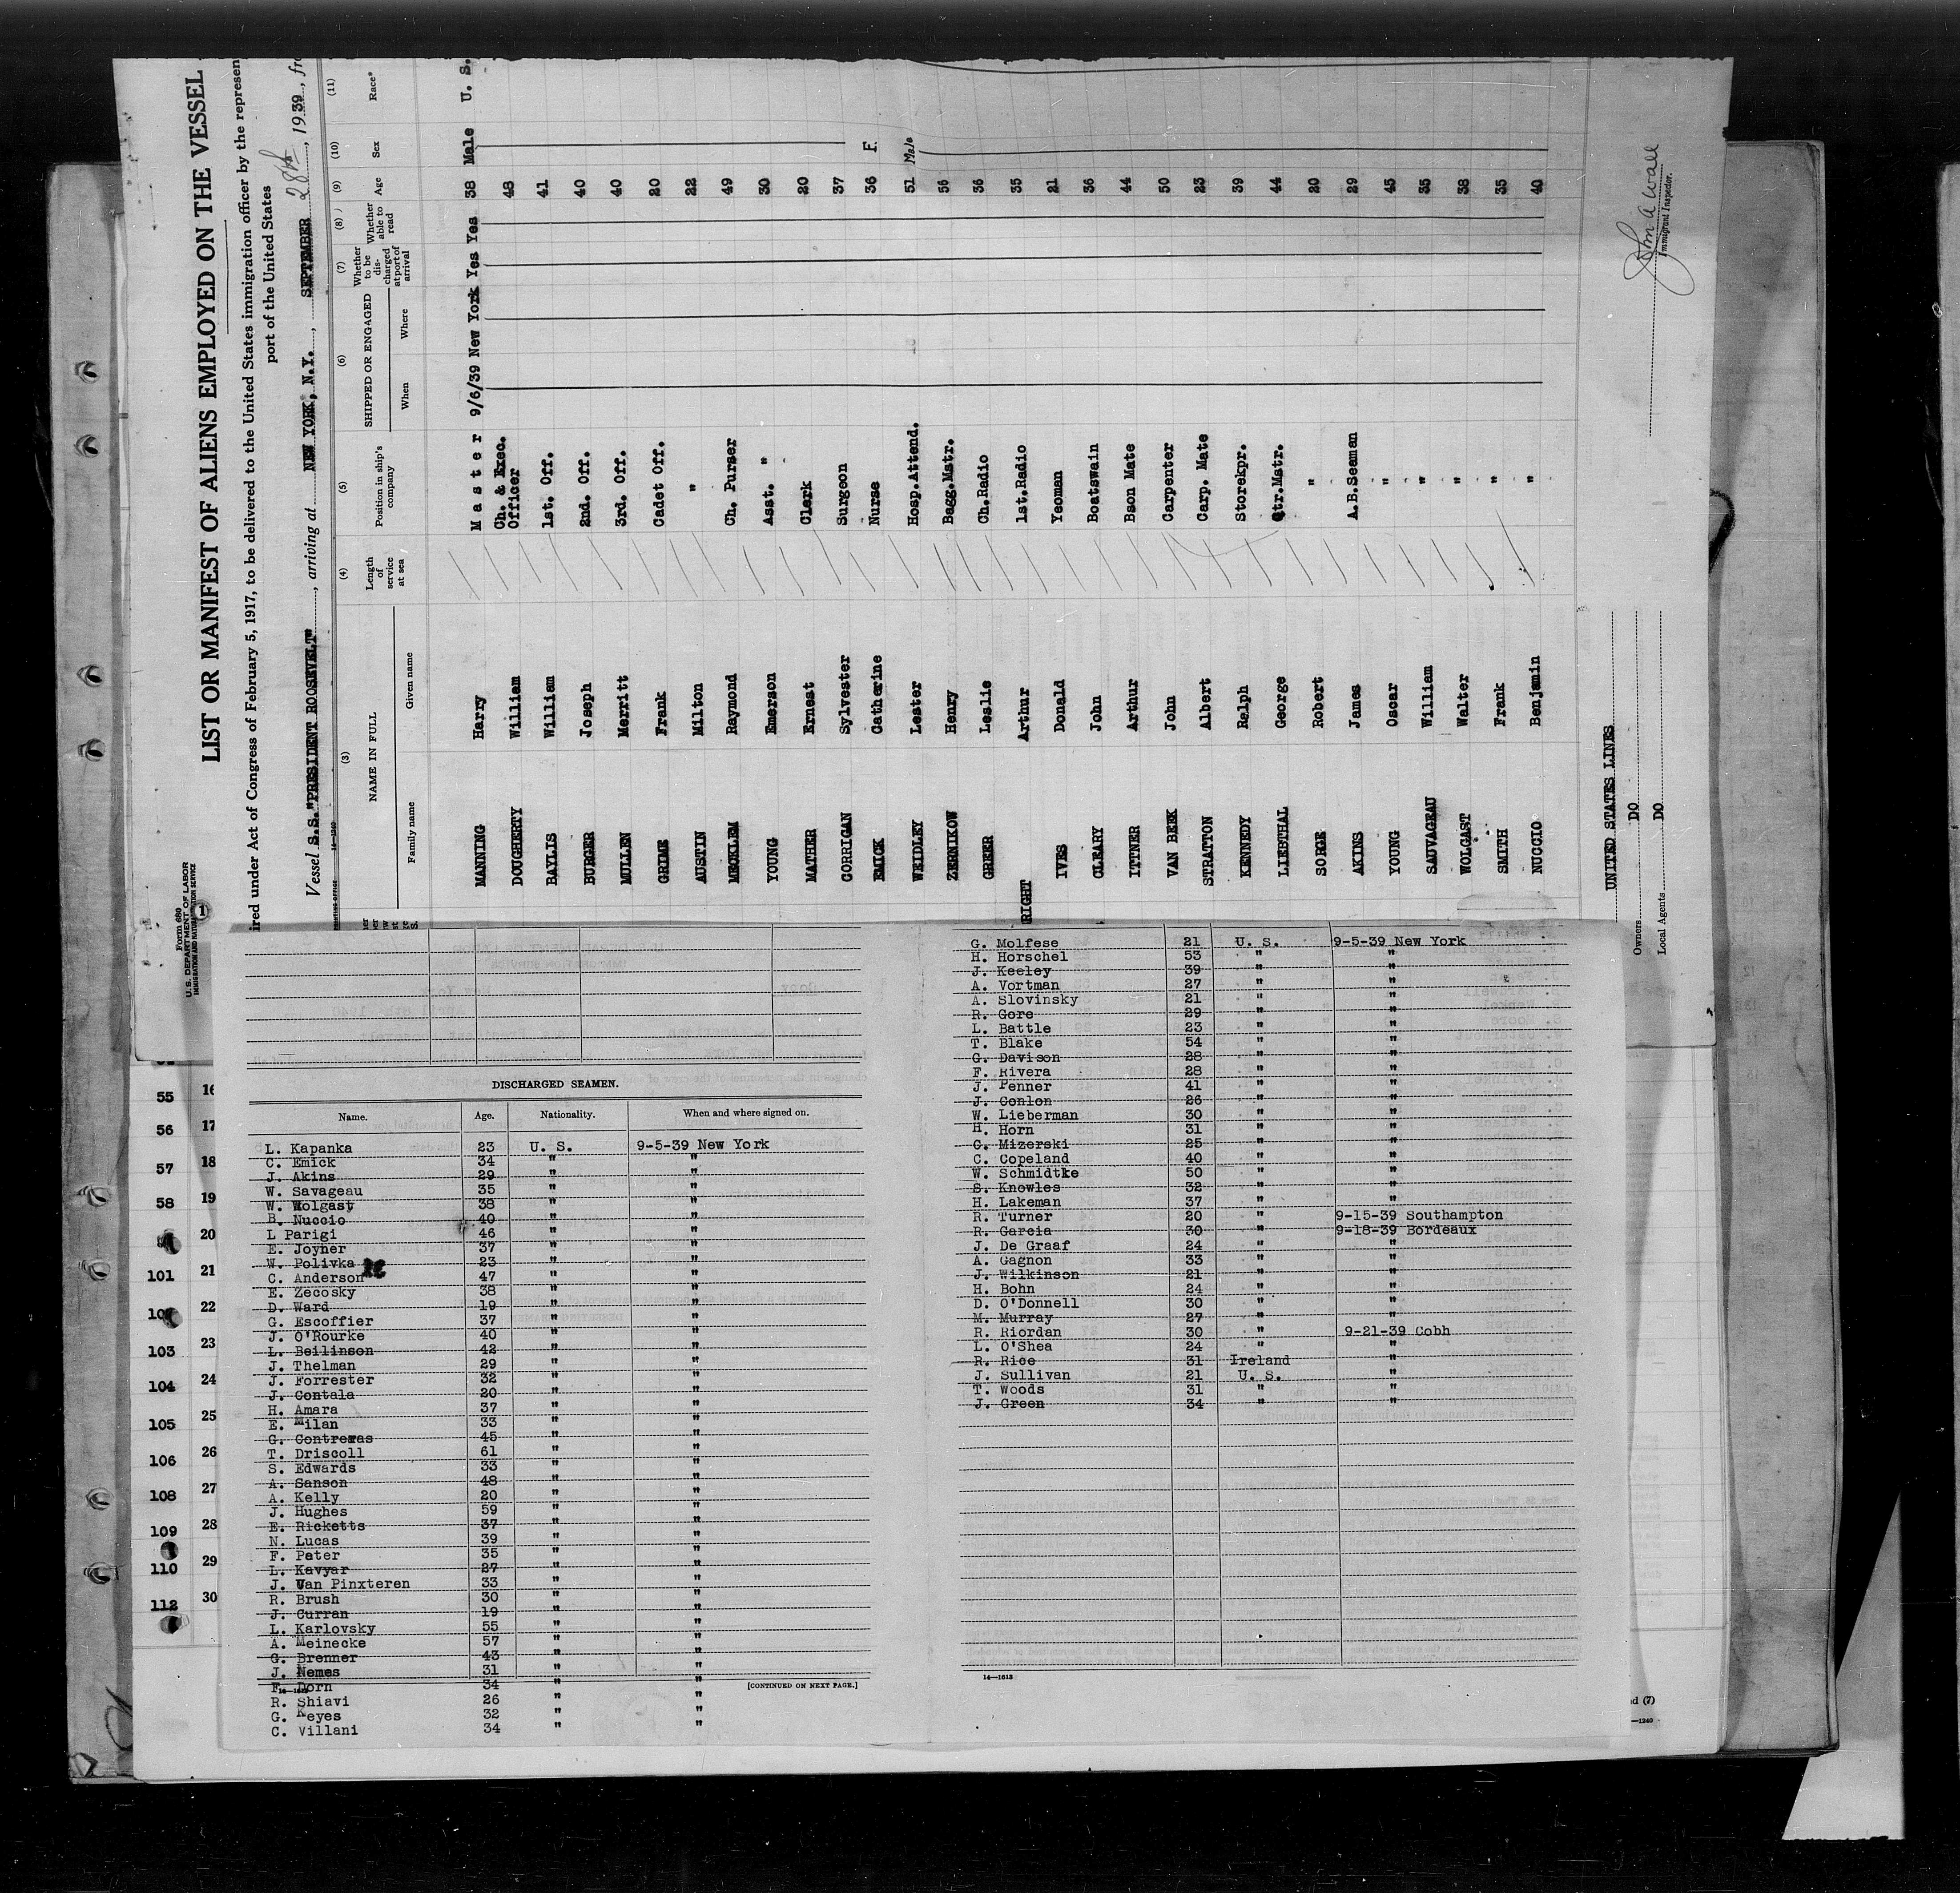 Form 680
U.S. DEPARTMENT OF LABOR
IMMIGRATION AND NATURALIZATION SERVICE
1
LIST OR MANIFEST OF ALIENS EMPLOYED ON THE VESSEL
ired under Act of Congress of February 5, 1917, to be delivered to the United States immigration officer by the represen
port of the United States
Vessel S.S."PRESIDENT ROOSEVELT", arriving at NEW YORK, N.Y., SEPTEMBER 28th, 1939, fro
(3) (4) (5) (6) (7) (8) (9) (10) (11)
NAME IN FULL
Family name Given name
Length of service at sea
Position in ship's company
SHIPPED OR ENGAGED
When Where
Whether to be discharged at port of arrival
Whether able to read
Age Sex Race*
MANNING Harry Master 9/6/39 New York Yes Yes 38 Male U. S.
DOUGHERTY William Ch. & Exec. Officer 48
BAYLIS William 1st. Off. 41
BURGER Joseph 2nd. Off. 40
MULLEN Merritt 3rd. Off. 40
GRIME Frank Cadet Off. 20
AUSTIN Milton " 22
MECKLEM Raymond Ch. Purser 49
YOUNG Emerson Asst. " 30
MATHER Ernest Clerk 20
CORRIGAN Sylvester Surgeon 37
EMICK Catherine Nurse 36 F.
WEIDLEY Lester Hosp.Attend. 51 Male
ZERNIKOW Henry Bagg.Mstr. 56
GREER Leslie Ch.Radio 36
RIGHT Arthur 1st.Radio 35
IVES Donald Yeoman 21
CLEARY John Boatswain 36
ITTNER Arthur Bson Mate 44
VAN BEEK John Carpenter 50
STRATTON Albert Carp. Mate 23
KENNEDY Ralph Storekpr. 39
LIEBTHAL George Qtr.Mstr. 44
SORGE Robert " 20
AKINS James A.B.Seaman 29
YOUNG Oscar " 45
SAUVAGEAU William " 35
WOLGAST Walter " 38
SMITH Frank " 35
NUCCIO Benjamin " 40
UNITED STATES LINES
Owners DO
Local Agents DO
John A Wall
Immigrant Inspector.
55 16
56 17
57 18
58 19
20
101 21
22
103 23
104 24
105 25
106 26
108 27
109 28
110 29
112 30
DISCHARGED SEAMEN.
Name. Age. Nationality. When and where signed on.
L. Kapanka 23 U. S. 9-5-39 New York
C. Emick 34 " "
J. Akins 29 " "
W. Savageau 35 " "
W. Wolgast 38 " "
B. Nuccio 40 " "
L Parigi 46 " "
E. Joyner 37 " "
W. Polivka 23 " "
C. Anderson 47 " "
E. Zecosky 38 " "
D. Ward 19 " "
G. Escoffier 37 " "
J. O'Rourke 40 " "
L. Beilinson 42 " "
J. Thelman 29 " "
J. Forrester 32 " "
J. Contala 20 " "
H. Amara 37 " "
E. Milan 33 " "
G. Contreras 45 " "
T. Driscoll 61 " "
S. Edwards 33 " "
A. Sanson 48 " "
A. Kelly 20 " "
J. Hughes 59 " "
E. Ricketts 37 " "
N. Lucas 39 " "
F. Pater 35 " "
L. Kavyar 27 " "
J. Van Pinxteren 33 " "
R. Brush 30 " "
J. Curran 19 " "
L. Karlovsky 55 " "
A. Meinecke 57 " "
G. Brenner 43 " "
J. Nemes 31 " "
F. Dorn 34 " "
[CONTINUED ON NEXT PAGE.]
R. Shiavi 26 " "
G. Keyes 32 " "
C. Villani 34 " "
G. Molfese 21 U. S. 9-5-39 New York
H. Horschel 53 " "
J. Keeley 39 " "
A. Vortman 27 " "
A. Slovinsky 21 " "
R. Gore 29 " "
L. Battle 23 " "
T. Blake 54 " "
G. Davison 28 " "
F. Rivera 28 " "
J. Penner 41 " "
J. Conlon 26 " "
W. Lieberman 30 " "
H. Horn 31 " "
G. Mizerski 25 " "
C. Copeland 40 " "
W. Schmidtke 50 " "
S. Knowles 32 " "
H. Lakeman 37 " "
R. Turner 20 " 9-15-39 Southampton
R. Garcia 30 " 9-18-39 Bordeaux
J. De Graaf 24 " "
A. Gagnon 33 " "
J. Wilkinson 21 " "
H. Bohn 24 " "
D. O'Donnell 30 " "
M. Murray 27 " "
R. Riordan 30 " 9-21-39 Cobh
L. O'Shea 24 " "
R. Rice 31 Ireland "
J. Sullivan 21 U. S. "
T. Woods 31 " "
J. Green 34 " "
14—1613
d (7)
—1240